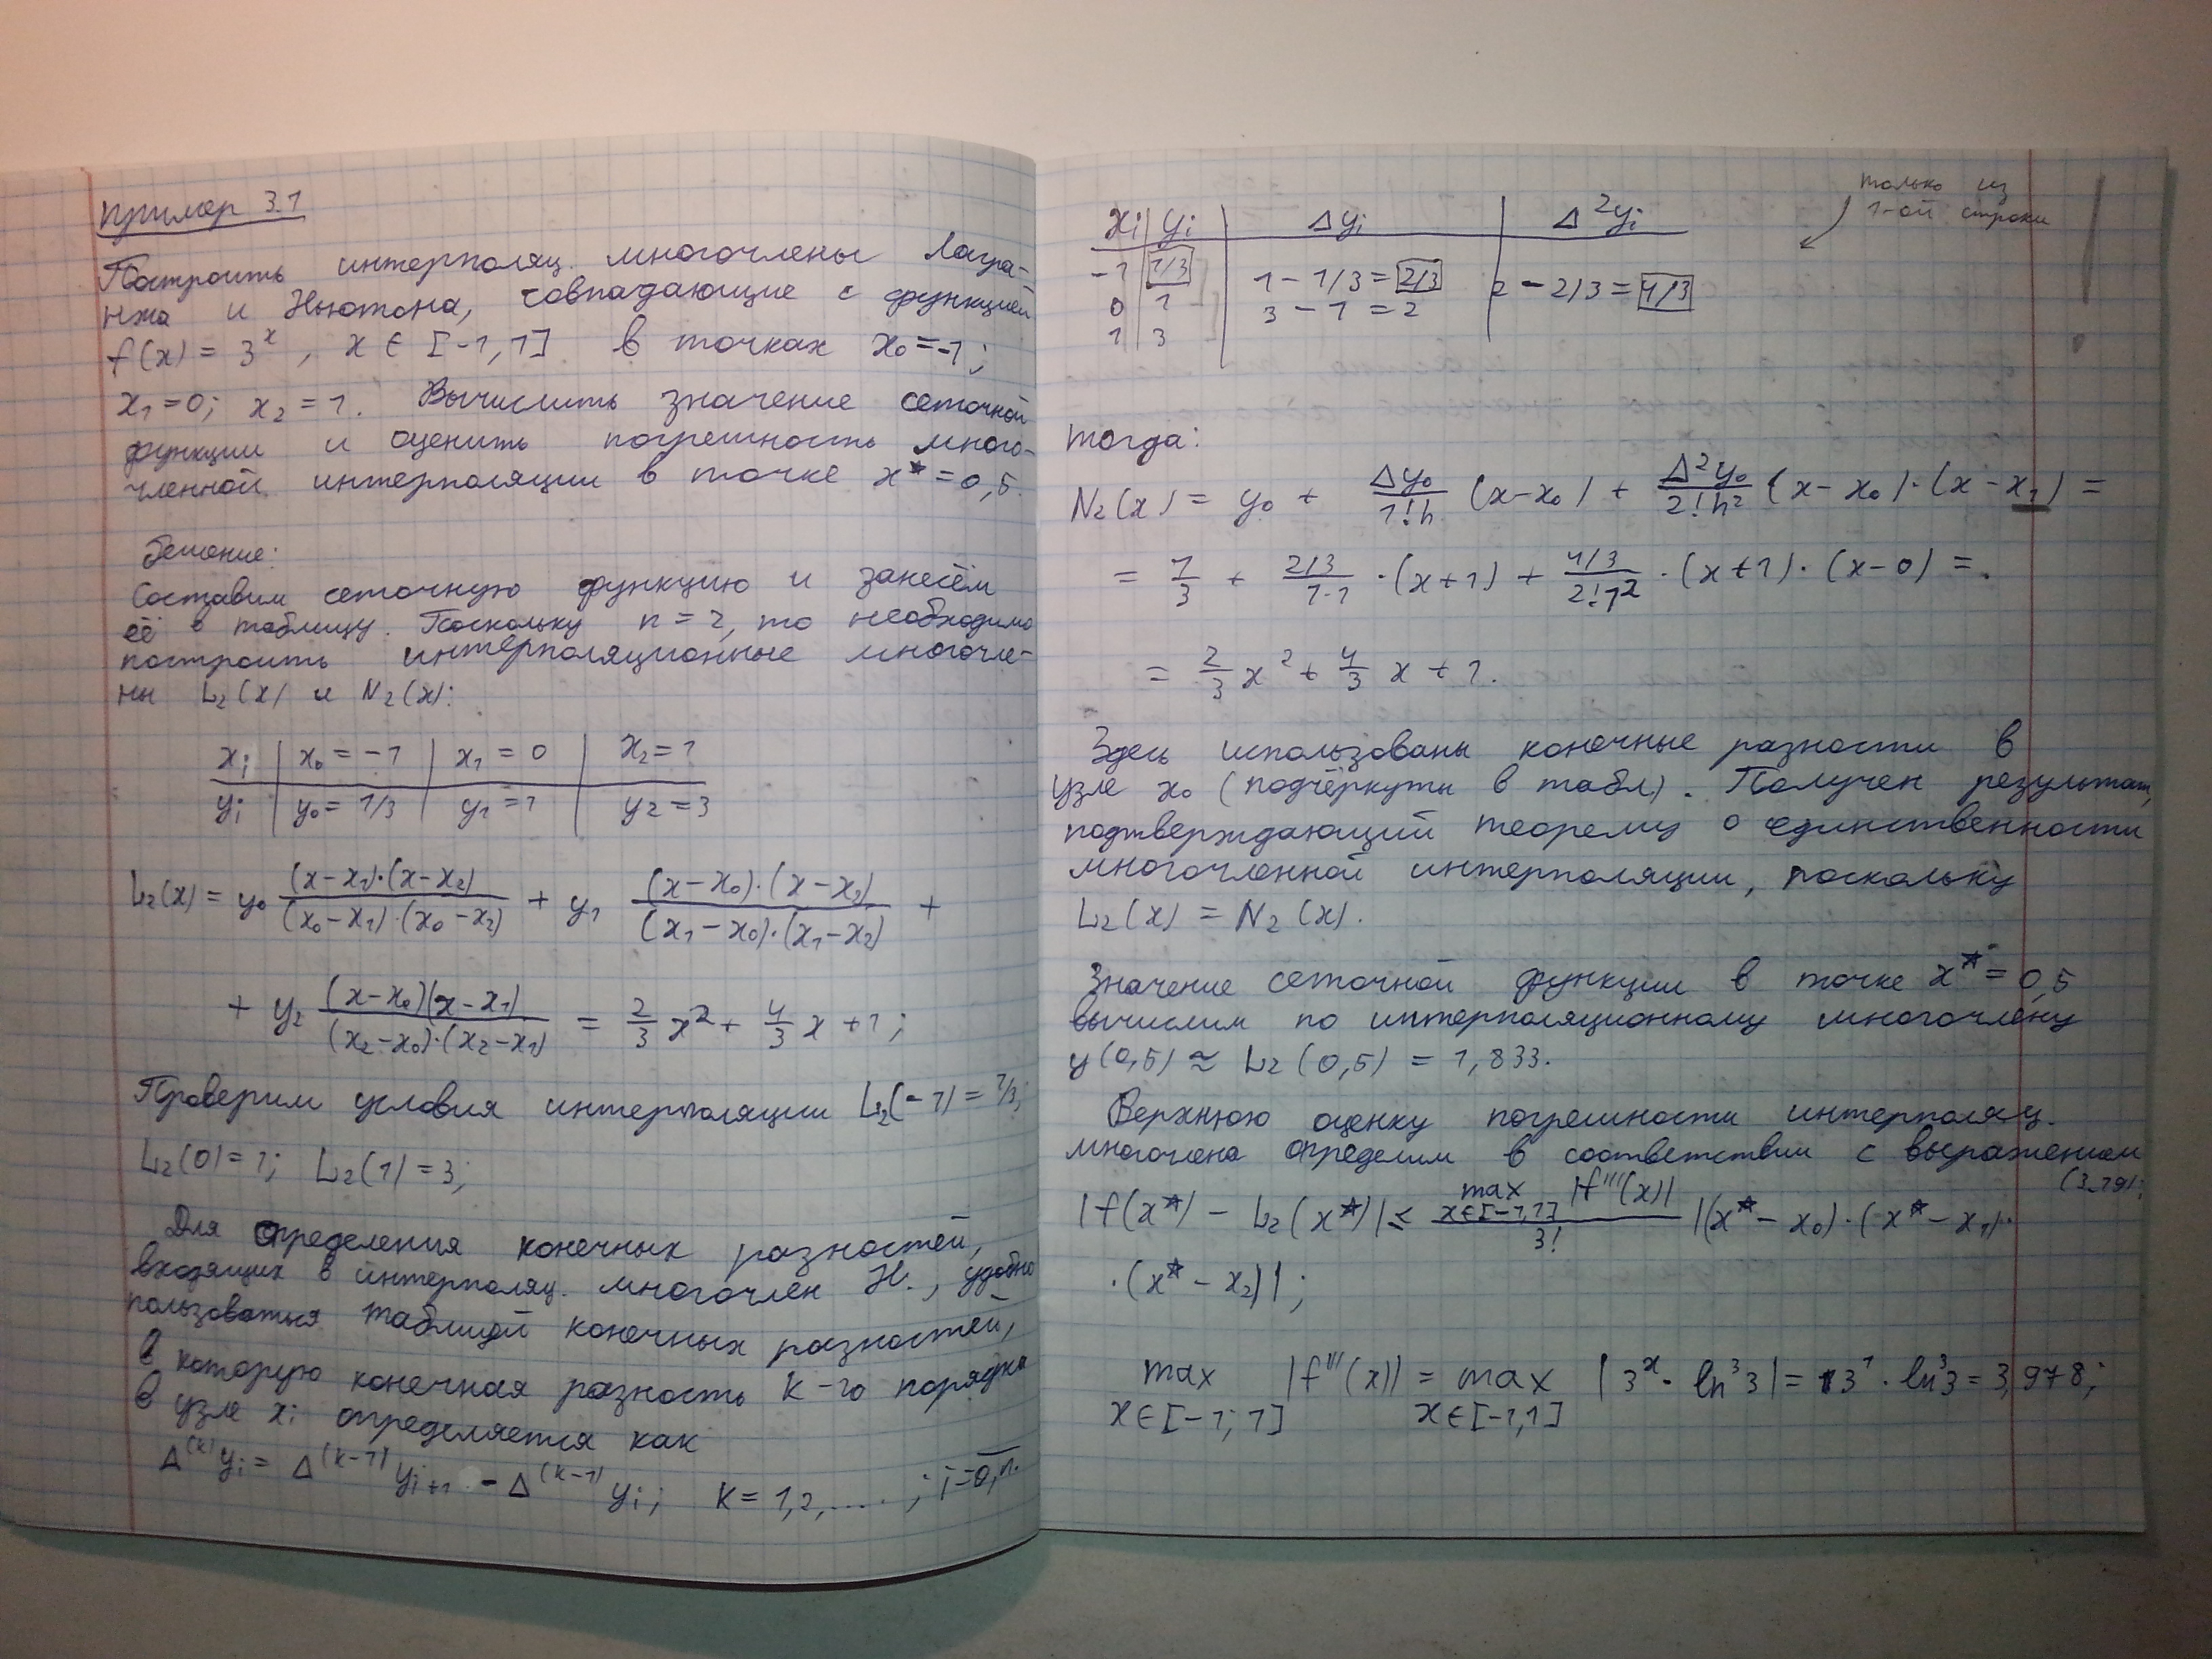 Пример 3.1
Построить интерполяц. многочлены Лагра-
нжа и Ньютона, совпадающие с функцией
f(x) = 3^x , x ∈ [-1,1] в точках x₀ = -1;
x₁ = 0; x₂ = 1. Вычислить значение сеточной
функции и оценить погрешность много-
членной интерполяции в точке x* = 0,5.
Решение:
Составим сеточную функцию и занесём
её в таблицу. Поскольку n = 2, то необходимо
построить интерполяционные многочле-
ны L₂(x) и N₂(x):
xᵢ | x₀ = -1 | x₁ = 0 | x₂ = 1
yᵢ | y₀ = 1/3 | y₁ = 1 | y₂ = 3
L₂(x) = y₀ (x-x₁)·(x-x₂)/(x₀-x₁)·(x₀-x₂) + y₁ (x-x₀)·(x-x₂)/(x₁-x₀)·(x₁-x₂) +
+ y₂ (x-x₀)(x-x₁)/(x₂-x₀)·(x₂-x₁) = 2/3 x² + 4/3 x + 1;
Проверим условия интерполяции L₂(-1) = 1/3;
L₂(0) = 1; L₂(1) = 3;
Для определения конечных разностей,
входящих в интерполяц. многочлен Н., удобно
пользоваться таблицей конечных разностей,
в которую конечная разность k-го порядка
в узле xᵢ определяется как
Δ^(k) yᵢ = Δ^(k-1) yᵢ₊₁ - Δ^(k-1) yᵢ; k = 1,2,.....; i = 0,n.
только из
1-ой строки
!
xᵢ | yᵢ | Δyᵢ | Δ²yᵢ
-1 | 1/3 | 1 - 1/3 = 2/3 | 2 - 2/3 = 4/3
0 | 1 | 3 - 1 = 2
1 | 3
тогда:
N₂(x) = y₀ + Δy₀/1!h (x-x₀) + Δ²y₀/2!h² (x-x₀)·(x-x₁) =
= 1/3 + 2/3/1·1 ·(x+1) + 4/3/2!1² ·(x+1)·(x-0) =
= 2/3 x² + 4/3 x + 1.
Здесь использованы конечные разности в
узле x₀ (подчёркнуты в табл). Получен результат,
подтверждающий теорему о единственности
многочленной интерполяции, поскольку
L₂(x) = N₂(x).
Значение сеточной функции в точке x* = 0,5
вычислим по интерполяционному многочлену
y(0,5) ≈ L₂(0,5) = 1,833.
Верхнюю оценку погрешности интерполяц.
многочлена определим в соответствии с выражением
(3.19):
|f(x*) - L₂(x*)| ≤ max x∈[-1,1] |f'''(x)|/3! |(x*-x₀)·(x*-x₁)·
·(x*-x₂)|;
max x∈[-1;1] |f'''(x)| = max x∈[-1,1] |3^x · ln³3| = 3¹ · ln³3 = 3,978;